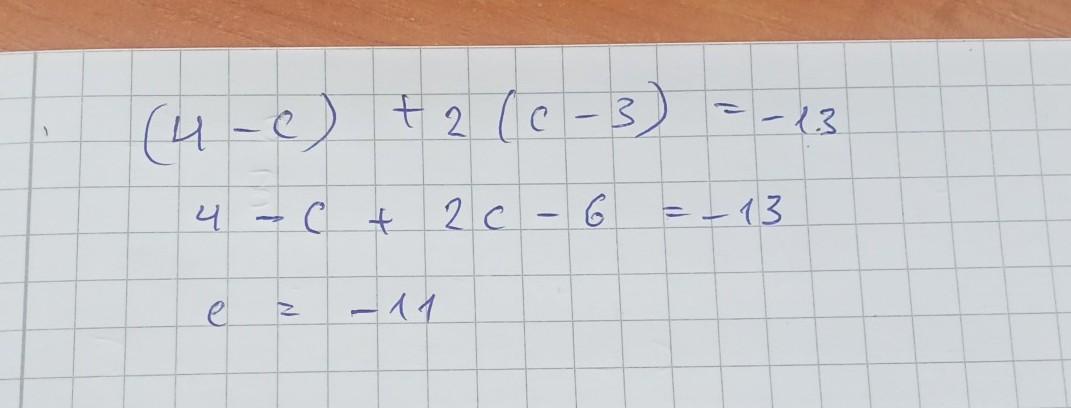 (4 - c) + 2 (c - 3) = -13
4 - c + 2c - 6 = -13
c = -11